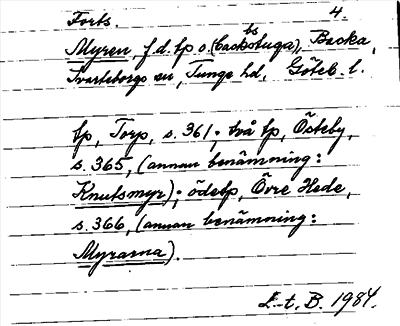 Forts. 4.
Myren f.d. lp o. (backstuga), bs Backa,
Svarteborgs sn, Tunge hd, Göteb. l.
lp, Torp, s. 361; två lp, Östeby,
s. 365, (annan benämning:
Knutsmyr); ödelp, Övre Hede,
s. 366, (annan benämning:
Myrarna).
L-t. B. 1984.